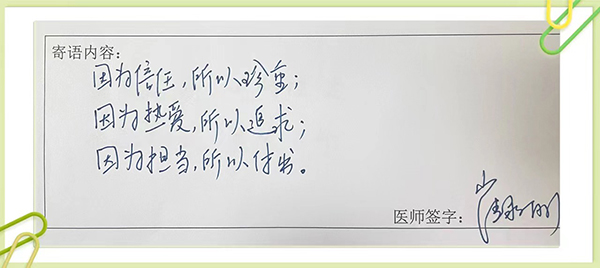 寄语内容:
因为信任,所以珍重;
因为热爱,所以追求;
因为担当,所以付出。
医师签字: